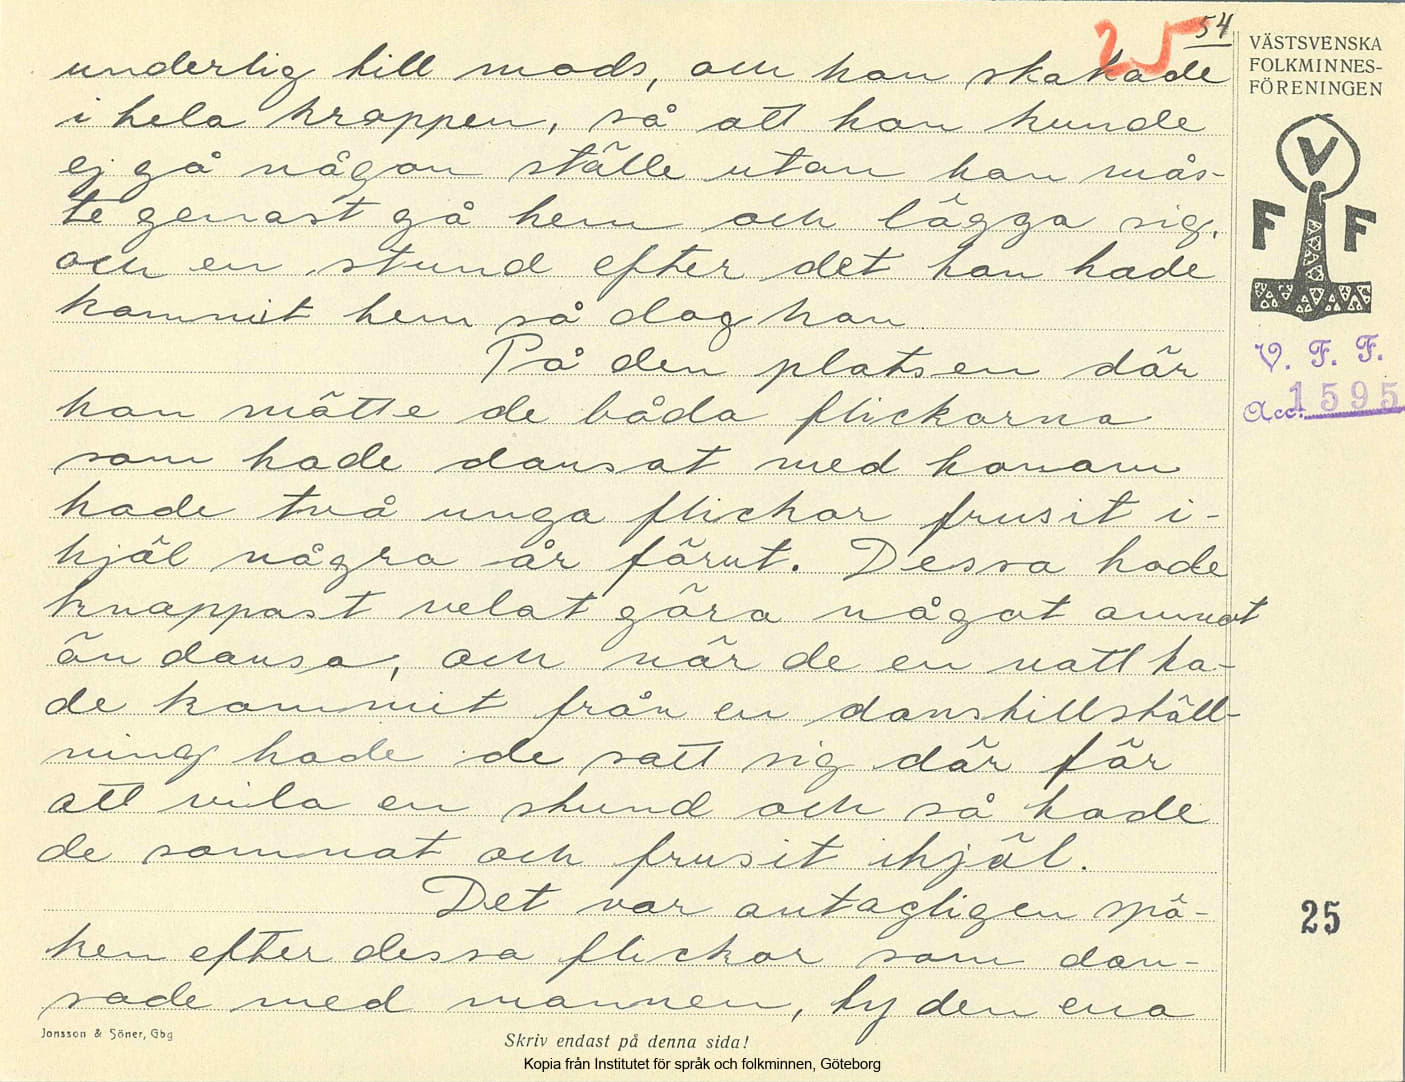 25 54
underlig till mods, och han skakade
i hela kroppen, så att han kunde
ej gå någon ställe utan han mås-
te genast gå hem och lägga sig,
och en stund efter det han hade
kommit hem så dog han
På den platsen där
han mätte de båda flickorna
som hade dansat med honom
hade två unga flickor frusit i-
hjäl några år förut. Dessa hade
knappast velat göra något annat
än dansa, och när de en natt ha-
de kommit från en danstillställ-
ning hade de satt sig där för
att vila en stund och så hade
de somnat och frusit ihjäl.
Det var antagligen spö-
ken efter dessa flickor som dan-
sade med mannen, ty den ena
VÄSTSVENSKA
FOLKMINNES-
FÖRENINGEN
V
F F
V. F. F.
Acc. 1595
25
Jonsson & Söner, Gbg
Skriv endast på denna sida!
Kopia från Institutet för språk och folkminnen, Göteborg